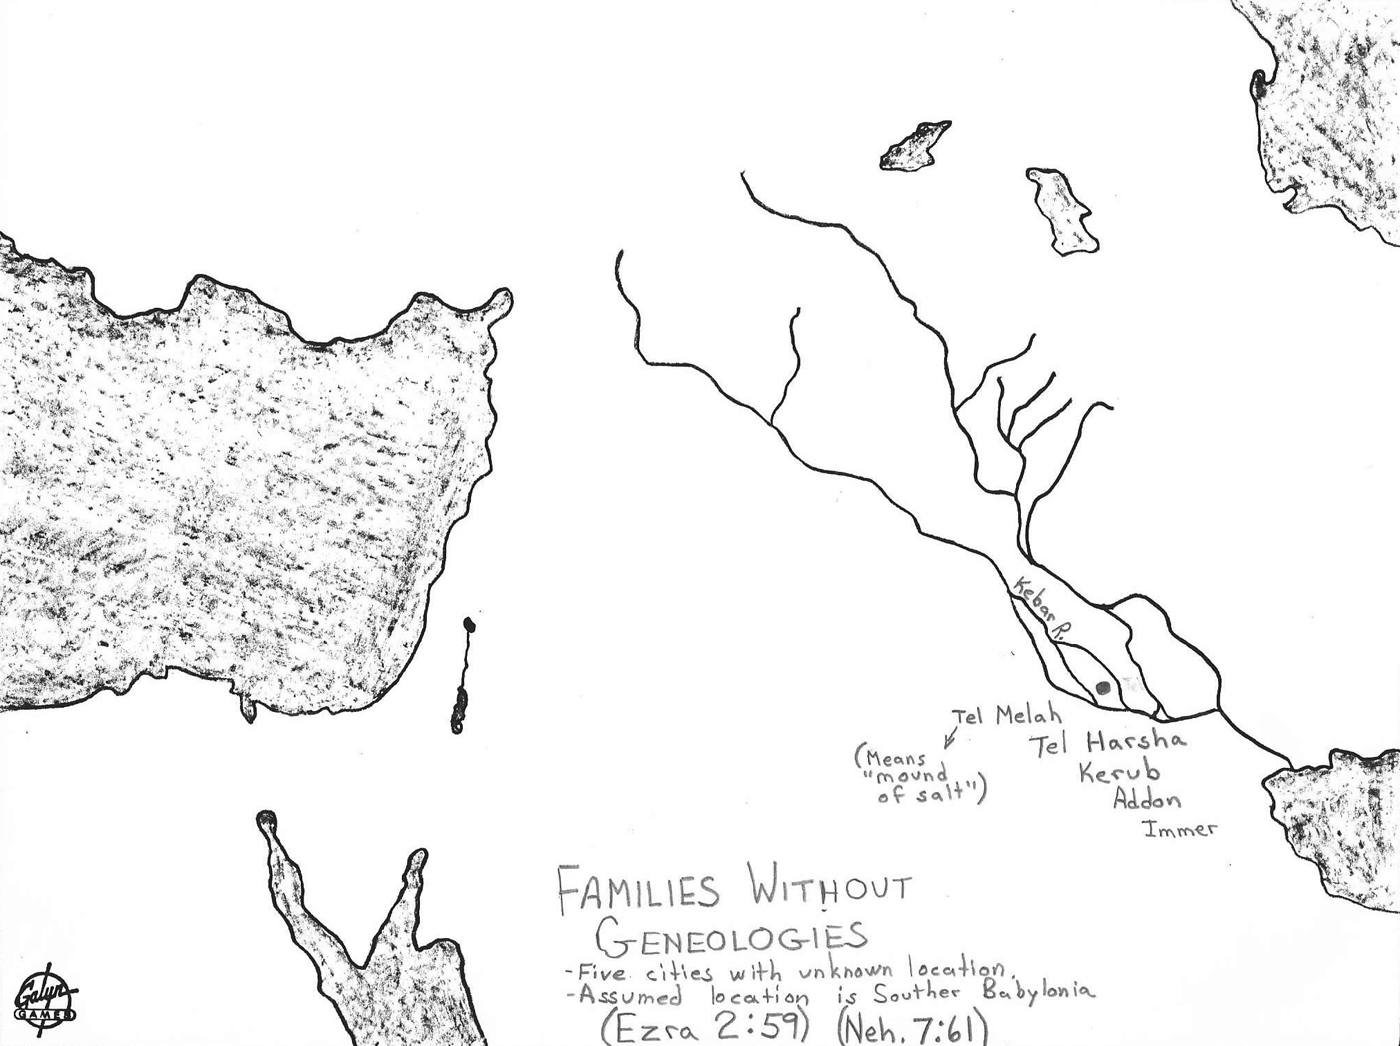 Kebar R.
Tel Melah
(Means
"mound
of salt")
Tel Harsha
Kerub
Addon
Immer
FAMILIES WITHOUT
GENEOLOGIES
-Five cities with unknown location.
-Assumed location is Souther Babylonia
(Ezra 2:59) (Neh. 7:61)
Galyn
GAMES